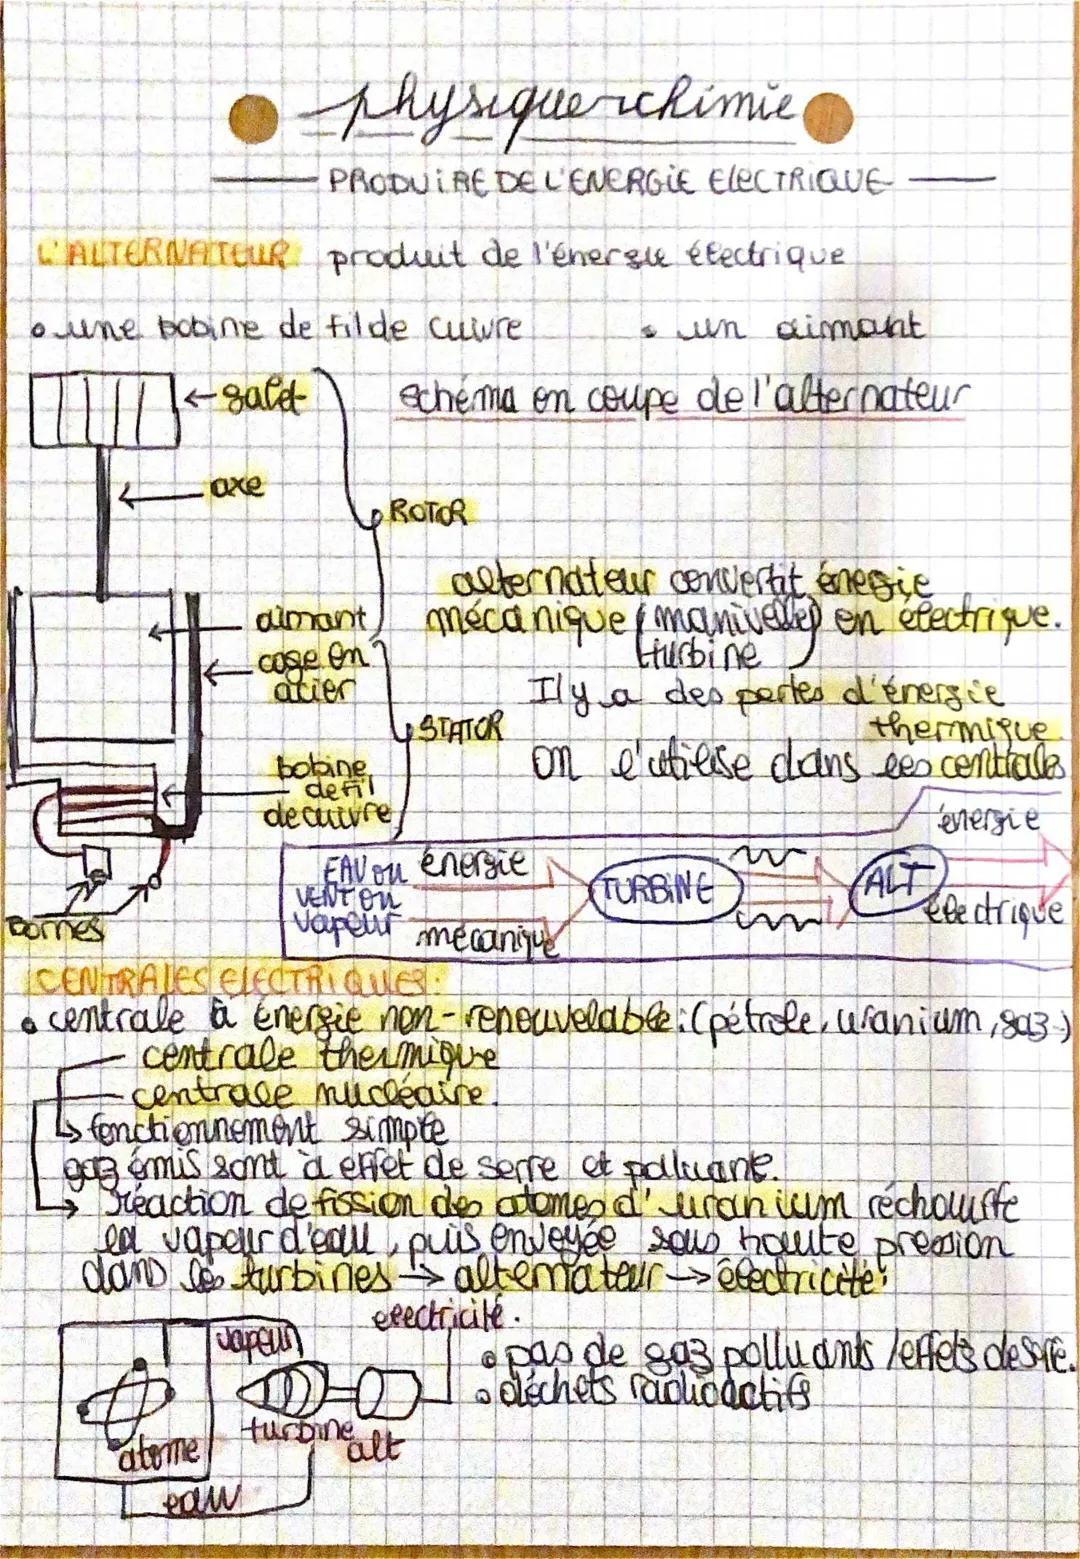 physique-chimie
PRODUIRE DE L'ENERGIE ElECTRIQUE
L'ALTERNATEUR produit de l'énergie électrique
• une bobine de fil de cuivre • un aimant
galet
schéma en coupe de l'alternateur
axe
ROTOR
alternateur convertit énergie
mécanique (manivelle) en électrique.
turbine
aimant
cage en
acier
Il y a des pertes d'énergie
thermique
STATOR
on l'utilise dans les centrales
bobine
de fil
de cuivre
bornes
EAU ou
VENT ou
vapeur
énergie
mécanique
TURBINE
ALT
énergie
électrique
CENTRALES ElECTRIQUES:
• centrale à énergie non-renouvelable: (pétrole, uranium, gaz.)
centrale thermique
centrale nucléaire.
↳ fonctionnement simple
gaz émis sont à effet de serre et polluant.
→ réaction de fission des atomes d'uranium réchauffe
la vapeur d'eau, puis envoyée sous haute pression
dans les turbines → alternateur → électricité.
electricité.
vapeur
• pas de gaz polluants /effets de serre.
• déchets radioactifs
turbine
alt
atome
eau